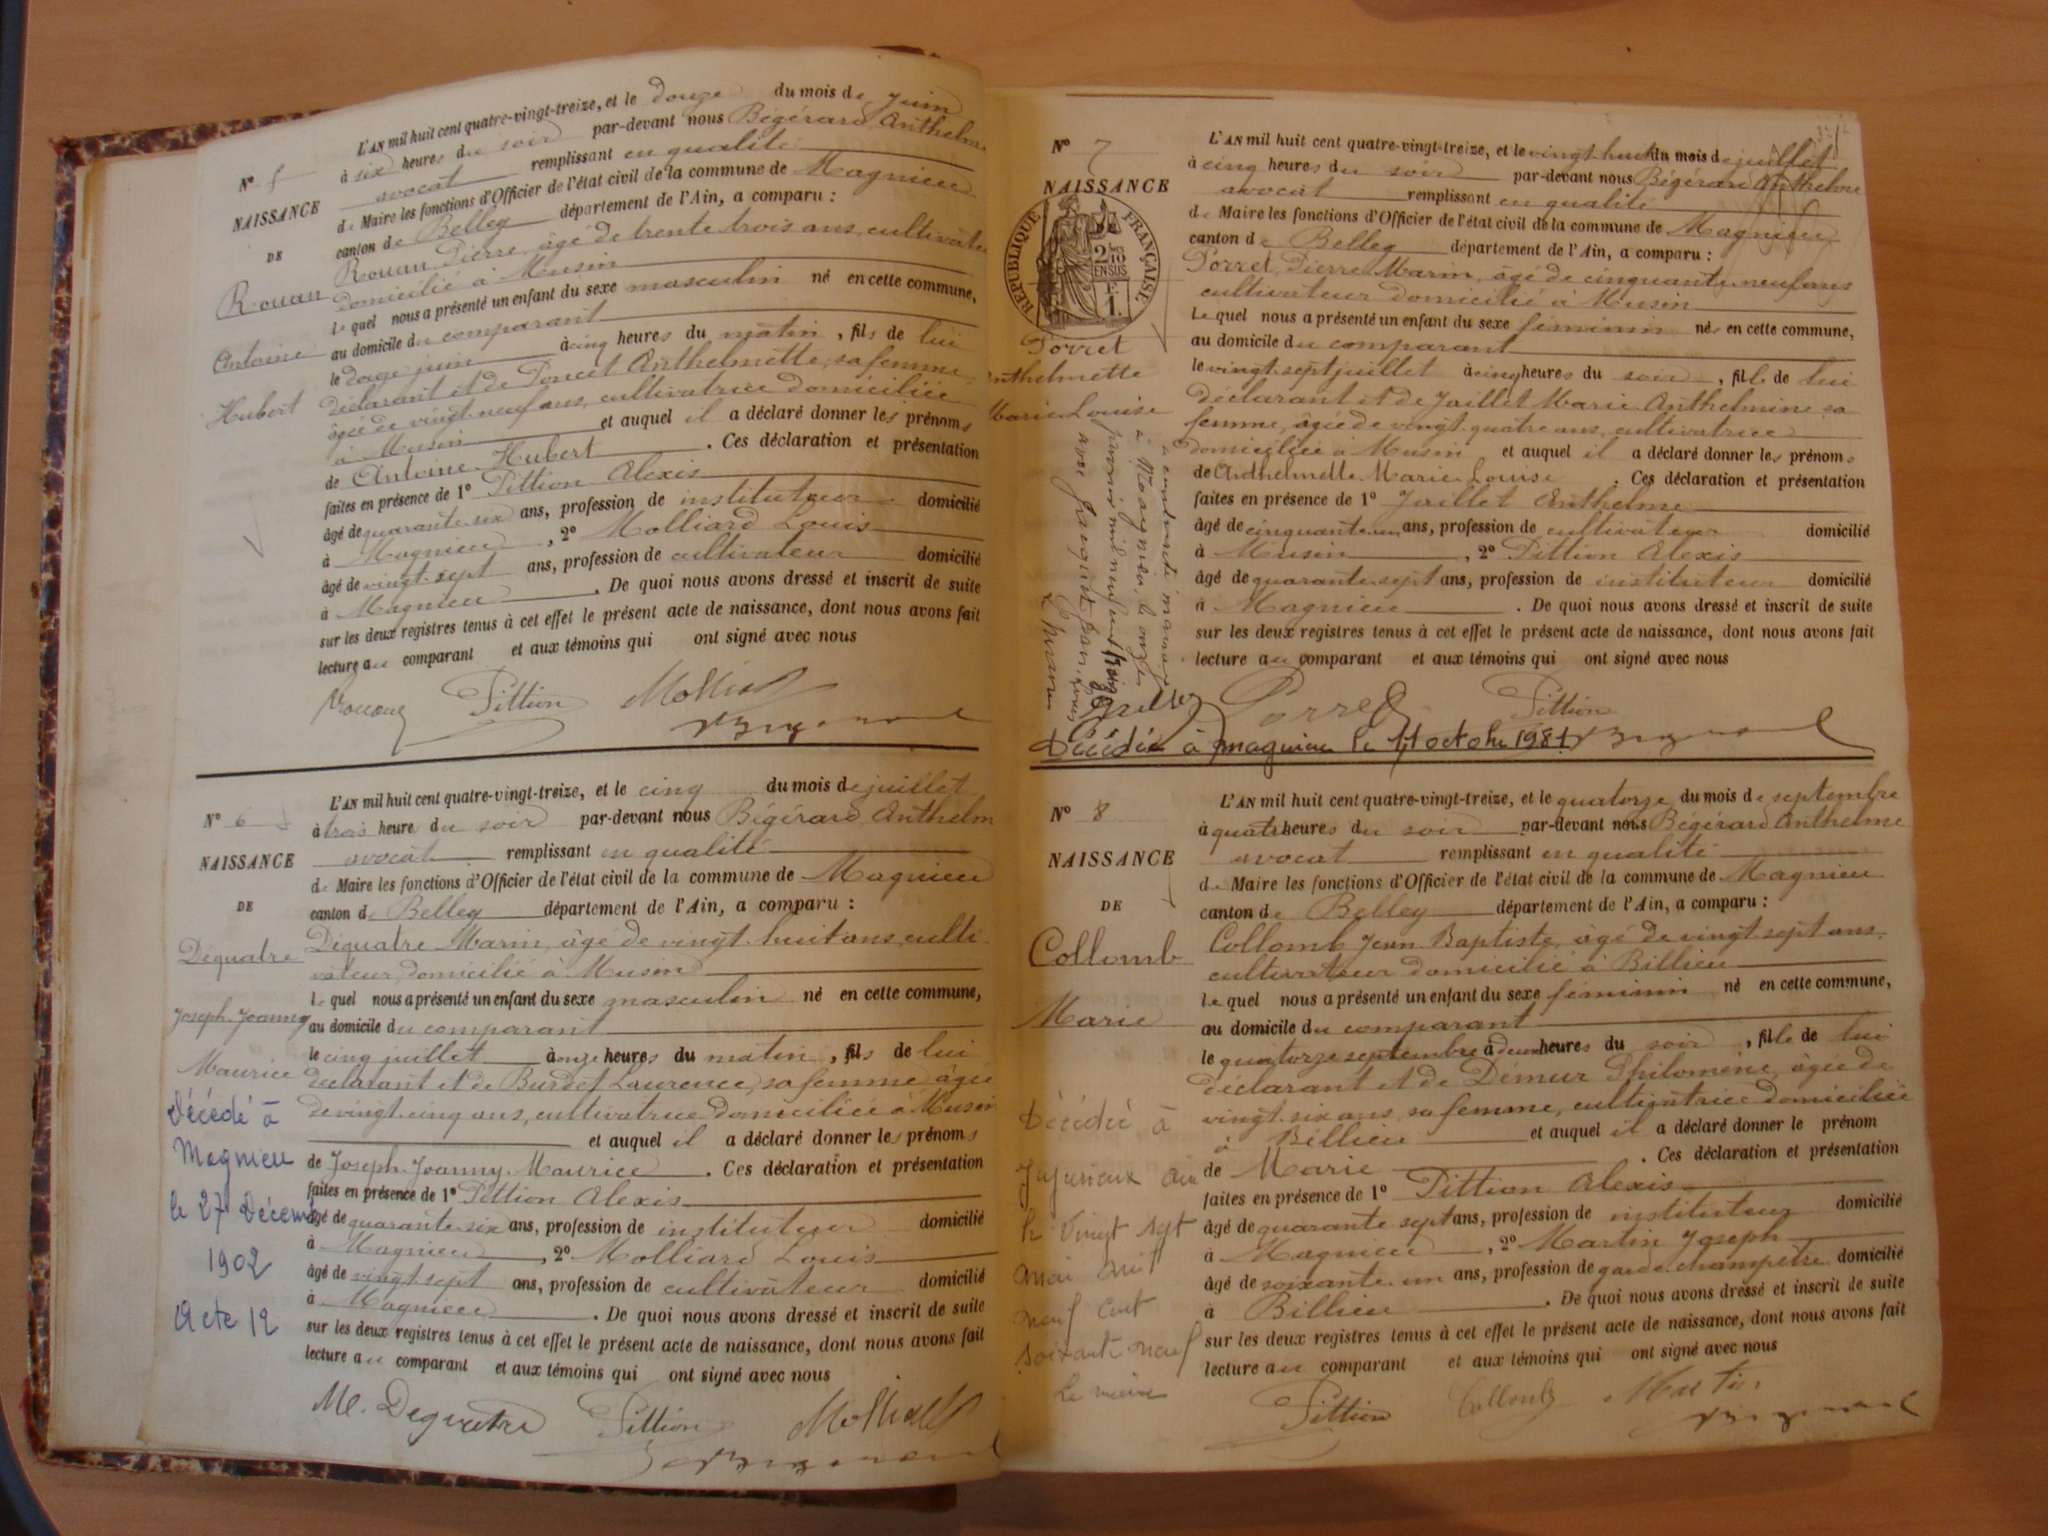 L'AN mil huit cent quatre-vingt-treize, et le douze du mois de juin
à six heures du soir par-devant nous Bégérard Anthelme
avocat remplissant en qualité
de Maire les fonctions d'Officier de l'état civil de la commune de Magnieu
canton de Belley département de l'Ain, a comparu :
Rouan Pierre, âgé de trente trois ans, cultivateur
domicilié à Musin
Lequel nous a présenté un enfant du sexe masculin né en cette commune,
au domicile du comparant
le douze juin à cinq heures du matin, fils de lui
déclarant et de Poncet Anthelmette, sa femme,
âgée de vingt neuf ans, cultivatrice domiciliée
à Musin et auquel il a déclaré donner les prénoms
de Antoine Hubert. Ces déclaration et présentation
faites en présence de 1° Pittion Alexis
âgé de quarante six ans, profession de instituteur domicilié
à Magnieu, 2° Molliard Louis
âgé de vingt-sept ans, profession de cultivateur domicilié
à Magnieu. De quoi nous avons dressé et inscrit de suite
sur les deux registres tenus à cet effet le présent acte de naissance, dont nous avons fait
lecture au comparant et aux témoins qui ont signé avec nous
N° 5
NAISSANCE
DE
Rouan
Antoine
Hubert
Pittion
N° 6
NAISSANCE
DE
Déquatre
Joseph Joanny
Maurice
Décédé à
Magnieu
le 27 Décemb
1902
Acte 12
L'AN mil huit cent quatre-vingt-treize, et le cinq du mois de juillet
à trois heure du soir par-devant nous Bégérard Anthelm
avocat remplissant en qualité
de Maire les fonctions d'Officier de l'état civil de la commune de Magnieu
canton de Belley département de l'Ain, a comparu :
Déquatre Marin, âgé de vingt-huit ans, culti-
vateur, domicilié à Musin
Lequel nous a présenté un enfant du sexe masculin né en cette commune,
au domicile du comparant
le cinq juillet à onze heures du matin, fils de lui
déclarant et de Burdet Laurence, sa femme âgée
de vingt-cinq ans, cultivatrice domiciliée à Musin
et auquel il a déclaré donner les prénoms
de Joseph Joanny Maurice. Ces déclaration et présentation
faites en présence de 1° Pittion Alexis
âgé de quarante-six ans, profession de instituteur domicilié
à Magnieu, 2° Molliard Louis
âgé de vingt-sept ans, profession de cultivateur domicilié
à Magnieu. De quoi nous avons dressé et inscrit de suite
sur les deux registres tenus à cet effet le présent acte de naissance, dont nous avons fait
lecture au comparant et aux témoins qui ont signé avec nous
M. Dequatre Pittion
N° 7
NAISSANCE
RÉPUBLIQUE FRANÇAISE
2/10 EN SUS
Porret
Anthelmette
Marie Louise
L'AN mil huit cent quatre-vingt-treize, et le vingt-huit du mois de juillet
à cinq heures du soir par-devant nous Bégérard Anthelme
avocat remplissant en qualité
de Maire les fonctions d'Officier de l'état civil de la commune de Magnieu
canton de Belley département de l'Ain, a comparu :
Porret Pierre Marin, âgé de cinquante neuf ans
cultivateur domicilié à Musin
Lequel nous a présenté un enfant du sexe féminin née en cette commune,
au domicile du comparant
le vingt-sept juillet à cinq heures du soir, fille de lui
déclarant et de Jaillet Marie Anthelmine sa
femme, âgée de vingt-quatre ans, cultivatrice
domiciliée à Musin et auquel il a déclaré donner les prénoms
de Anthelmette Marie Louise. Ces déclaration et présentation
faites en présence de 1° Jaillet Anthelme
âgé de cinquante-un ans, profession de cultivateur domicilié
à Musin, 2° Pittion Alexis
âgé de quarante-sept ans, profession de instituteur domicilié
à Magnieu. De quoi nous avons dressé et inscrit de suite
sur les deux registres tenus à cet effet le présent acte de naissance, dont nous avons fait
lecture au comparant et aux témoins qui ont signé avec nous
Porret Pittion
Décédée à Magnieu le 11 octobre 1981
N° 8
NAISSANCE
DE
Collomb
Marie
Décédée à
Jujurieux Ain
le vingt sept
mai mil
neuf cent
soixante neuf
Le maire
L'AN mil huit cent quatre-vingt-treize, et le quatorze du mois de septembre
à quatre heures du soir par-devant nous Bégérard Anthelme
avocat remplissant en qualité
de Maire les fonctions d'Officier de l'état civil de la commune de Magnieu
canton de Belley département de l'Ain, a comparu :
Collomb Jean Baptiste, âgé de vingt-sept ans,
cultivateur domicilié à Billieu
Lequel nous a présenté un enfant du sexe féminin né en cette commune,
au domicile du comparant
le quatorze septembre à deux heures du soir, fille de lui
déclarant et de Démeur Philomène, âgée de
vingt-six ans, sa femme, cultivatrice domiciliée
à Billieu et auquel il a déclaré donner le prénom
de Marie. Ces déclaration et présentation
faites en présence de 1° Pittion Alexis
âgé de quarante sept ans, profession de instituteur domicilié
à Magnieu, 2° Martin Joseph
âgé de soixante-un ans, profession de garde-champêtre domicilié
à Billieu. De quoi nous avons dressé et inscrit de suite
sur les deux registres tenus à cet effet le présent acte de naissance, dont nous avons fait
lecture au comparant et aux témoins qui ont signé avec nous
Pittion Collomb Martin